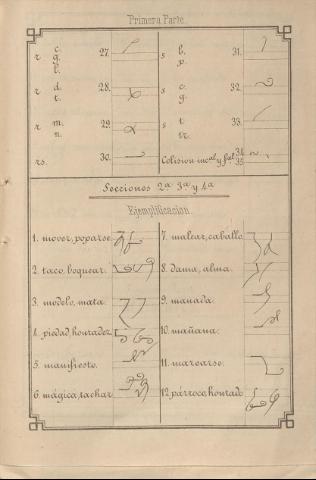 Primera Parte.
r c. g. l. 27.
r d. t. 28.
r m. n. 29.
rs. 30.
s l. p. 31.
s c. g. 32.
s t. tr. 33.
Colision 34. 35.
Secciones 2ª 3ª y 4ª
Ejemplificacion.
1. mover, poparse.
2. taco, boquear.
3. modelo, mata.
4. piedad, honradez.
5. manifiesto.
6. mágica, tachar.
7. malear, caballo.
8. dama, alma.
9. manada.
10. mañana.
11. marcarse.
12. párroco, honrado.